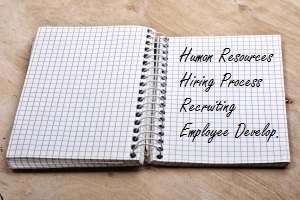 Human Resources
Hiring Process
Recruiting
Employee Develop.